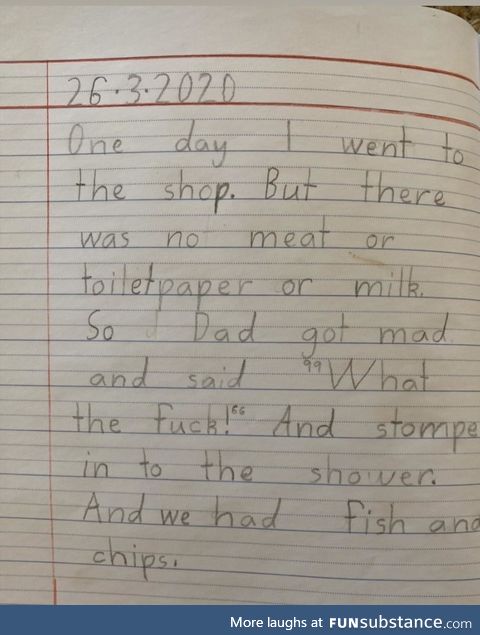 26.3.2020
One day I went to
the shop. But there
was no meat or
toiletpaper or milk.
So Dad got mad
and said "What
the fuck!" And stompe
in to the shower.
And we had fish and
chips.
More laughs at FUNsubstance.com